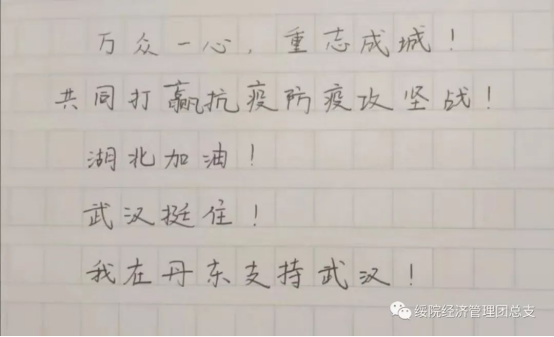 万众一心，重志成城！
共同打赢抗疫防疫攻坚战！
湖北加油！
武汉挺住！
我在丹东支持武汉！
绥院经济管理团总支